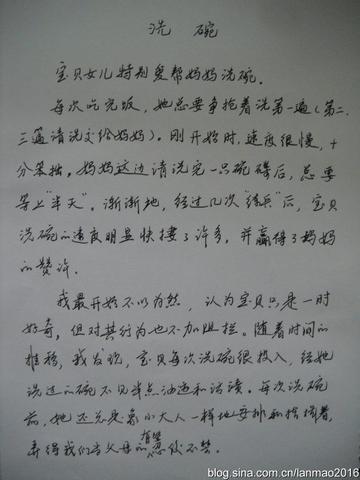 洗 碗
宝贝女儿特别爱帮妈妈洗碗。
每次吃完饭，她总要争抢着洗第一遍（第二、
三遍清洗交给妈妈）。刚开始时，速度很慢，十
分笨拙。妈妈这边清洗完一只碗碟后，总要
等上“半天”。渐渐地，经过几次“练兵”后，宝贝
洗碗的速度明显快捷了许多，并赢得了妈妈
的赞许。
我最开始不以为然，认为宝贝只是一时
好奇，但对其行为也不加阻拦。随着时间的
推移，我发现，宝贝每次洗碗很投入，经她
洗过的碗不见半点油迹和洁渍。每次洗碗
前，她还总是象小大人一样地安排和指挥着，
弄得我们当父母的有些忍俊不禁。
blog.sina.com.cn/lanmao2016